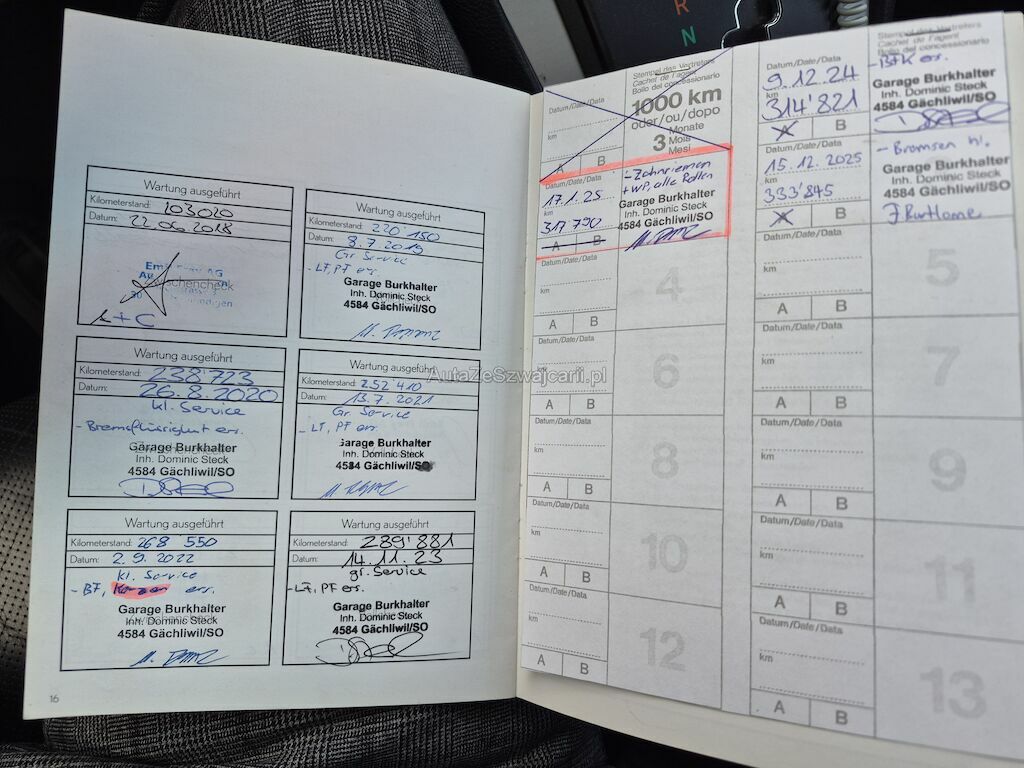 R
N
Wartung ausgeführt
Kilometerstand: 103020
Datum: 22.06.2018
A+C
Wartung ausgeführt
Kilometerstand: 220 150
Datum: 8.7.2019
Gr Service
- LF, PF ers.
Garage Burkhalter
Inh. Dominic Steck
4584 Gächliwil/SO
Wartung ausgeführt
Kilometerstand: 238'723
Datum: 26.8.2020
kl. Service
- Bremsflüssigkeit ers.
Garage Burkhalter
Inh. Dominic Steck
4584 Gächliwil/SO
Wartung ausgeführt
Kilometerstand: 252'410
Datum: 13.7.2021
Gr. Service
- LF, PF ers.
Garage Burkhalter
Inh. Dominic Steck
4584 Gächliwil/SO
Wartung ausgeführt
Kilometerstand: 268 550
Datum: 2.9.2022
kl. Service
- BF, Kerzen ers.
Garage Burkhalter
Inh. Dominic Steck
4584 Gächliwil/SO
Wartung ausgeführt
Kilometerstand: 289'881
Datum: 14.11.23
gr. Service
- LF, PF ers.
Garage Burkhalter
Inh. Dominic Steck
4584 Gächliwil/SO
16
Datum/Date/Data
km
A B
Stempel des Vertreters
Cachet de l'agent
Bollo del concessionario
1000 km
oder/ou/dopo
3 Monate
Mois
Mesi
Datum/Date/Data
17.1.25
km
317'790
A B
- Zahnriemen
+ WP, alle Rollen
Garage Burkhalter
Inh. Dominic Steck
4584 Gächliwil/SO
Datum/Date/Data
km
A B
4
Datum/Date/Data
km
A B
6
Datum/Date/Data
km
A B
8
Datum/Date/Data
km
A B
10
Datum/Date/Data
km
A B
12
Datum/Date/Data
9.12.24
km
314'821
A B
Stempel des Vertreters
Cachet de l'agent
Bollo del concessionario
- BFK ers.
Garage Burkhalter
Inh. Dominic Steck
4584 Gächliwil/SO
Datum/Date/Data
15.12.2025
km
333'845
A B
- Bremsen hi.
Garage Burkhalter
Inh. Dominic Steck
4584 Gächliwil/SO
Datum/Date/Data
km
A B
5
Datum/Date/Data
km
A B
7
Datum/Date/Data
km
A B
9
Datum/Date/Data
km
A B
11
Datum/Date/Data
km
A B
13
AutaZeSzwajcarii.pl